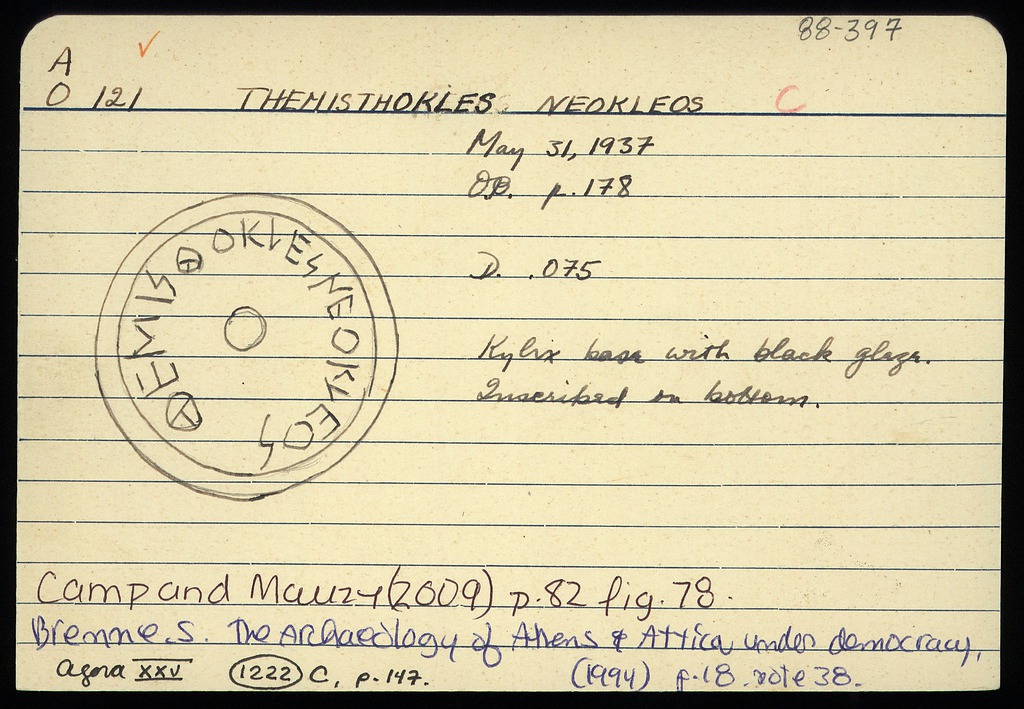 88-397
A
O 121 THEMISTHOKLES NEOKLEOS C
May 31, 1937
OB. p. 178
D. .075
ΘEMISΘOKLES NEOKLEOS
Kylix base with black glaze.
Inscribed on bottom.
Camp and Mauzy (2009) p.82 fig.78.
Bremne.S. The Archaeology of Athens & Attica under democracy,
(1994) p.18. note 38.
Agora XXV 1222 C, p. 147.